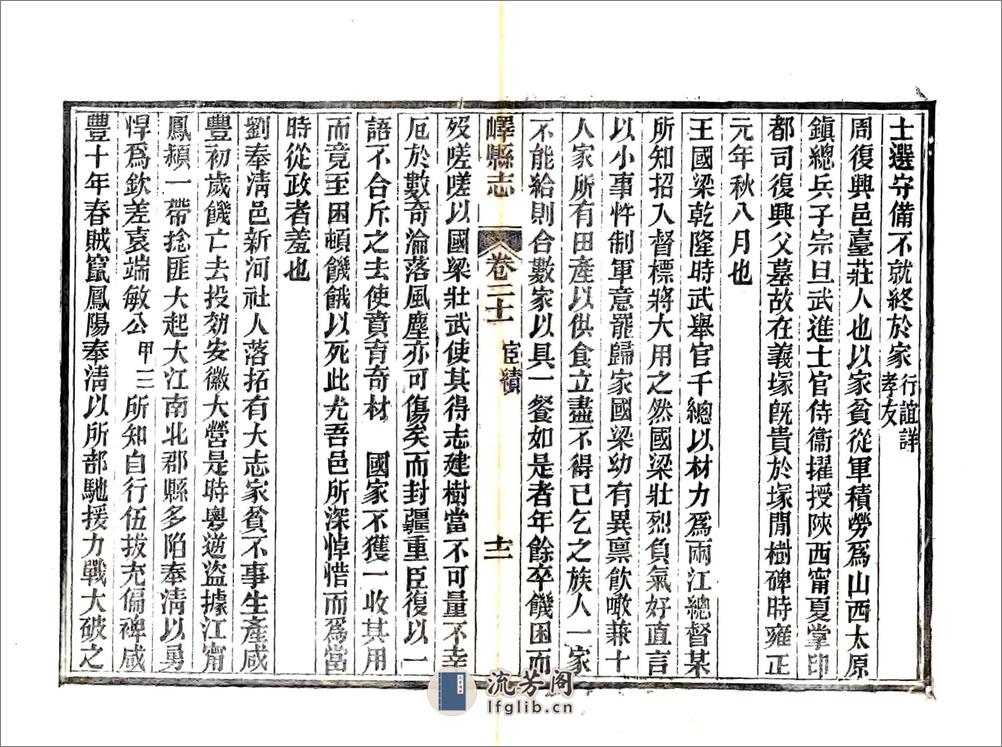 士選守備不就終於家行誼詳孝友
周復興邑臺莊人也以家貧從軍積勞爲山西太原
鎮總兵子宗旦武進士官侍衞擢授陝西甯夏掌印
都司復興父墓故在義塚旣貴於塚閒樹碑時雍正
元年秋八月也
王國梁乾隆時武舉官千總以材力爲兩江總督某
所知招入督標將大用之然國梁壯烈負氣好直言
以小事忤制軍意罷歸家國梁幼有異稟飲噉兼十
人家所有田產以供食立盡不得已乞之族人一家
不能給則合數家以具一餐如是者年餘卒饑困而
嶧縣志 卷二十一 宦績 十二
歿嗟嗟以國梁壯武使其得志建樹當不可量不幸
厄於數奇淪落風塵亦可傷矣而封疆重臣復以一
語不合斥之去使賁育奇材 國家不獲一收其用
而竟至困頓饑餓以死此尤吾邑所深悼惜而爲當
時從政者羞也
劉奉淸邑新河社人落拓有大志家貧不事生產咸
豐初歲饑亡去投効安徽大營是時粵逆盜據江甯
鳳潁一帶捻匪大起大江南北郡縣多陷奉淸以勇
悍爲欽差袁端敏公甲三所知自行伍拔充偏裨咸
豐十年春賊竄鳳陽奉淸以所部馳援力戰大破之
流芳阁
lfglib.cn